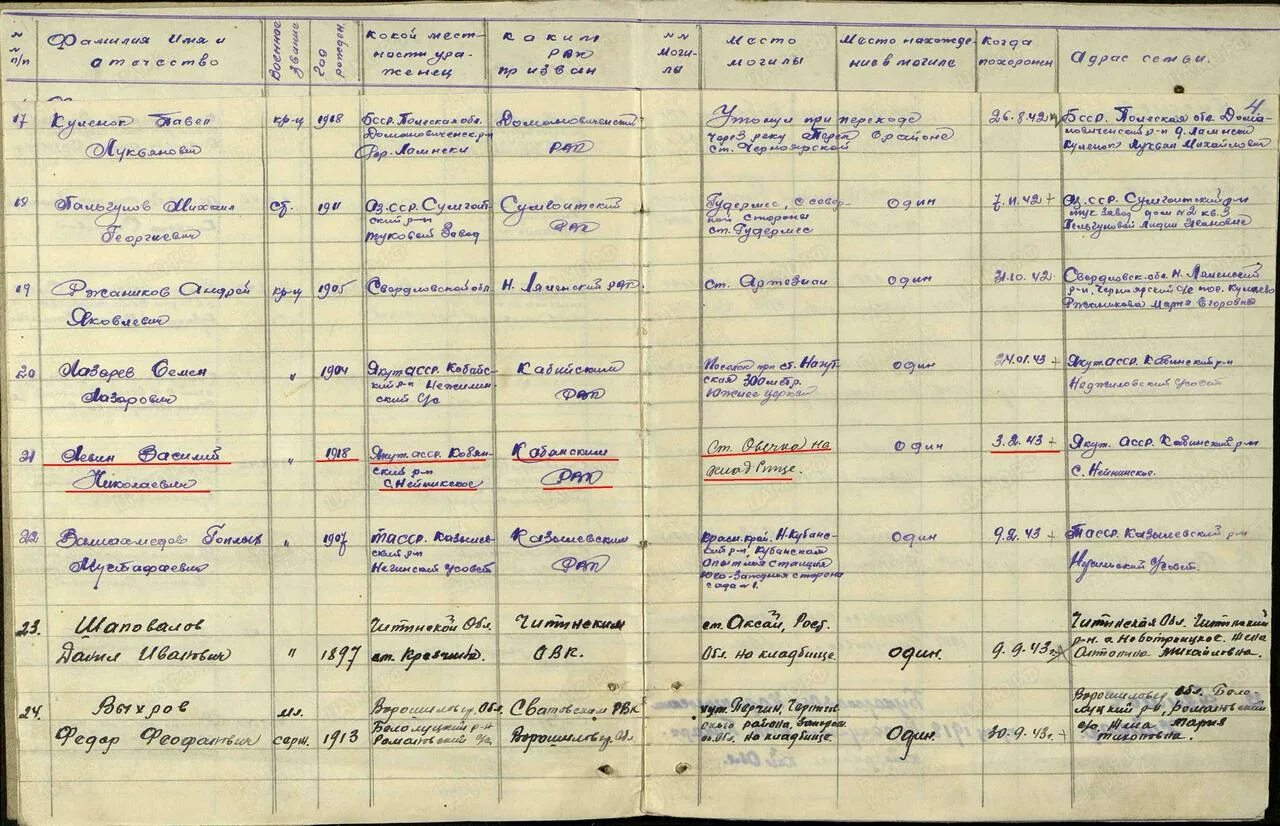 № п/п
Фамилия Имя и отчество
Военное звание
Год рожден.
какой мест-
ности ура-
женец
каким
РВК
призван
№№
моги-
лы
Место
могилы
Место нахожде-
ние в могиле
Когда
похоронен
Адрас семьи.
4
17
Куленок Павел
Лукьянович
кр-ц
1918
Бсср. Полеская обл.
Домановиченск. р-н
Домановиченский
РВК
Утонул при переходе
через реку Терек в районе
ст. Черноярской
26.8.42
Бсср. Полеская обл. Дома-
новиченский р-н
18
Пальгунов Михаил
Георгиевич
ст.
1911
Аз.сср. Сумгоит-
ский р-н
туковый завод
Сумгоитский
РВК
Гудермес, с север-
ной стороны
ст. Гудермес
один
7.11.42 +
Аз. сср. Сумгоитский р-н
тук завод дом №2 кв. 3
19
Ржаников Андрей
Яковлевич
кр-ц
1905
Свердловской обл
Н. Ляленский РВК
ст. Артезиан
один
31.10.42
Свердловск. обл. Н. Ляленский
Ржаникова Мария Егоровна
20
Лазарев Семен
Лазарович
"
1904
Якут асср. Кобяйс-
кий р-н
ский с/с
Кабийский
РВК
Поселок при ст. Нагут-
ская 300 метр.
Южнее церкви
один
24.01.43 +
Якут асср. Кабинский р-н
21
Левин Василий
Николаевич
"
1918
Якут. асср. Кобян-
ский р-н
Кабанским
РВК
ст. Овечка на
кладбище.
один
3.2.43 +
Якут. асср. Кабинский р-н
22
Мустафаевич
"
1907
Тасср. Казылев-
ский р-н
Казылевским
РВК
Красн. край, Н-Кубан-
ский р-н, Кубанская
опытная станция
Юго-западная сторона
сада №1.
один
9.2.43 +
Тасср. Казылевский р-н
23.
Шаповалов
Данил Иванович
"
1897
Читинской Обл.
Читинским
ОВК.
ст. Аксай, Рост.
Обл. на кладбище.
один.
9.9.43г.
Читинская Обл. Читинский
р-н с. Новотроицкое. Жена
Антонина Михайловна.
24.
Выхров
Федор Феофанович
мл.
серж.
1913
Ворошиловгр. Обл.
Белолуцкий р-н
Романовский с/с.
Сватовским РВК
Ворошиловгр. Обл
хут. Перчин,
ского района, Запорож.
Обл. на кладбище.
Один.
30.9.43г. +
Ворошиловгр. обл. Бело
луцкий р-н. Романовский
с/с. Жена Мария